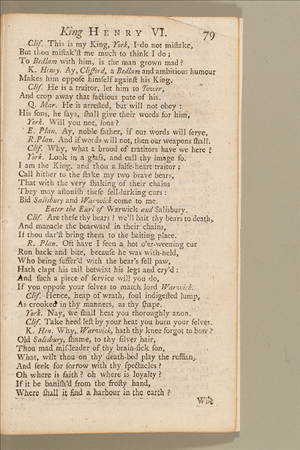 King HENRY VI. 79
Clif. This is my King, York, I do not mistake,
But thou mistak'st me much to think I do;
To Bedlam with him, is the man grown mad?
K. Henry. Ay, Clifford, a Bedlam and ambitious humour
Makes him oppose himself against his King.
Clif. He is a traitor, let him to Tower,
And crop away that factious pate of his.
Q. Mar. He is arrested, but will not obey:
His sons, he says, shall give their words for him.
York. Will you not, sons?
E. Plan. Ay, noble father, if our words will serve.
R. Plan. And if words will not, then our weapons shall.
Clif. Why, what a brood of traitors have we here?
York. Look in a glass, and call thy image so.
I am the King, and thou a false-heart traitor:
Call hither to the stake my two brave bears,
That with the very shaking of their chains
They may astonish these fell-lurking curs:
Bid Salisbury and Warwick come to me.
Enter the Earl of Warwick and Salisbury.
Clif. Are these thy bears? we'll bait thy bears to death,
And manacle the bearward in their chains,
If thou dar'st bring them to the baiting place.
R. Plan. Oft have I seen a hot o'er-weening cur
Run back and bite, because he was with-held,
Who being suffer'd with the bear's fell paw,
Hath clapt his tail betwixt his legs and cry'd:
And such a piece of service will you do,
If you oppose your selves to match lord Warwick.
Clif. Hence, heap of wrath, foul indigested lump,
As crooked in thy manners, as thy shape.
York. Nay, we shall heat you thoroughly anon.
Clif. Take heed lest by your heat you burn your selves.
K. Hen. Why, Warwick, hath thy knee forgot to bow?
Old Salisbury, shame, to thy silver hair,
Thou mad mis-leader of thy brain-sick son,
What, wilt thou on thy death-bed play the ruffian,
And seek for sorrow with thy spectacles?
Oh where is faith? oh where is loyalty?
If it be banish'd from the frosty hand,
Where shall it find a harbour in the earth?